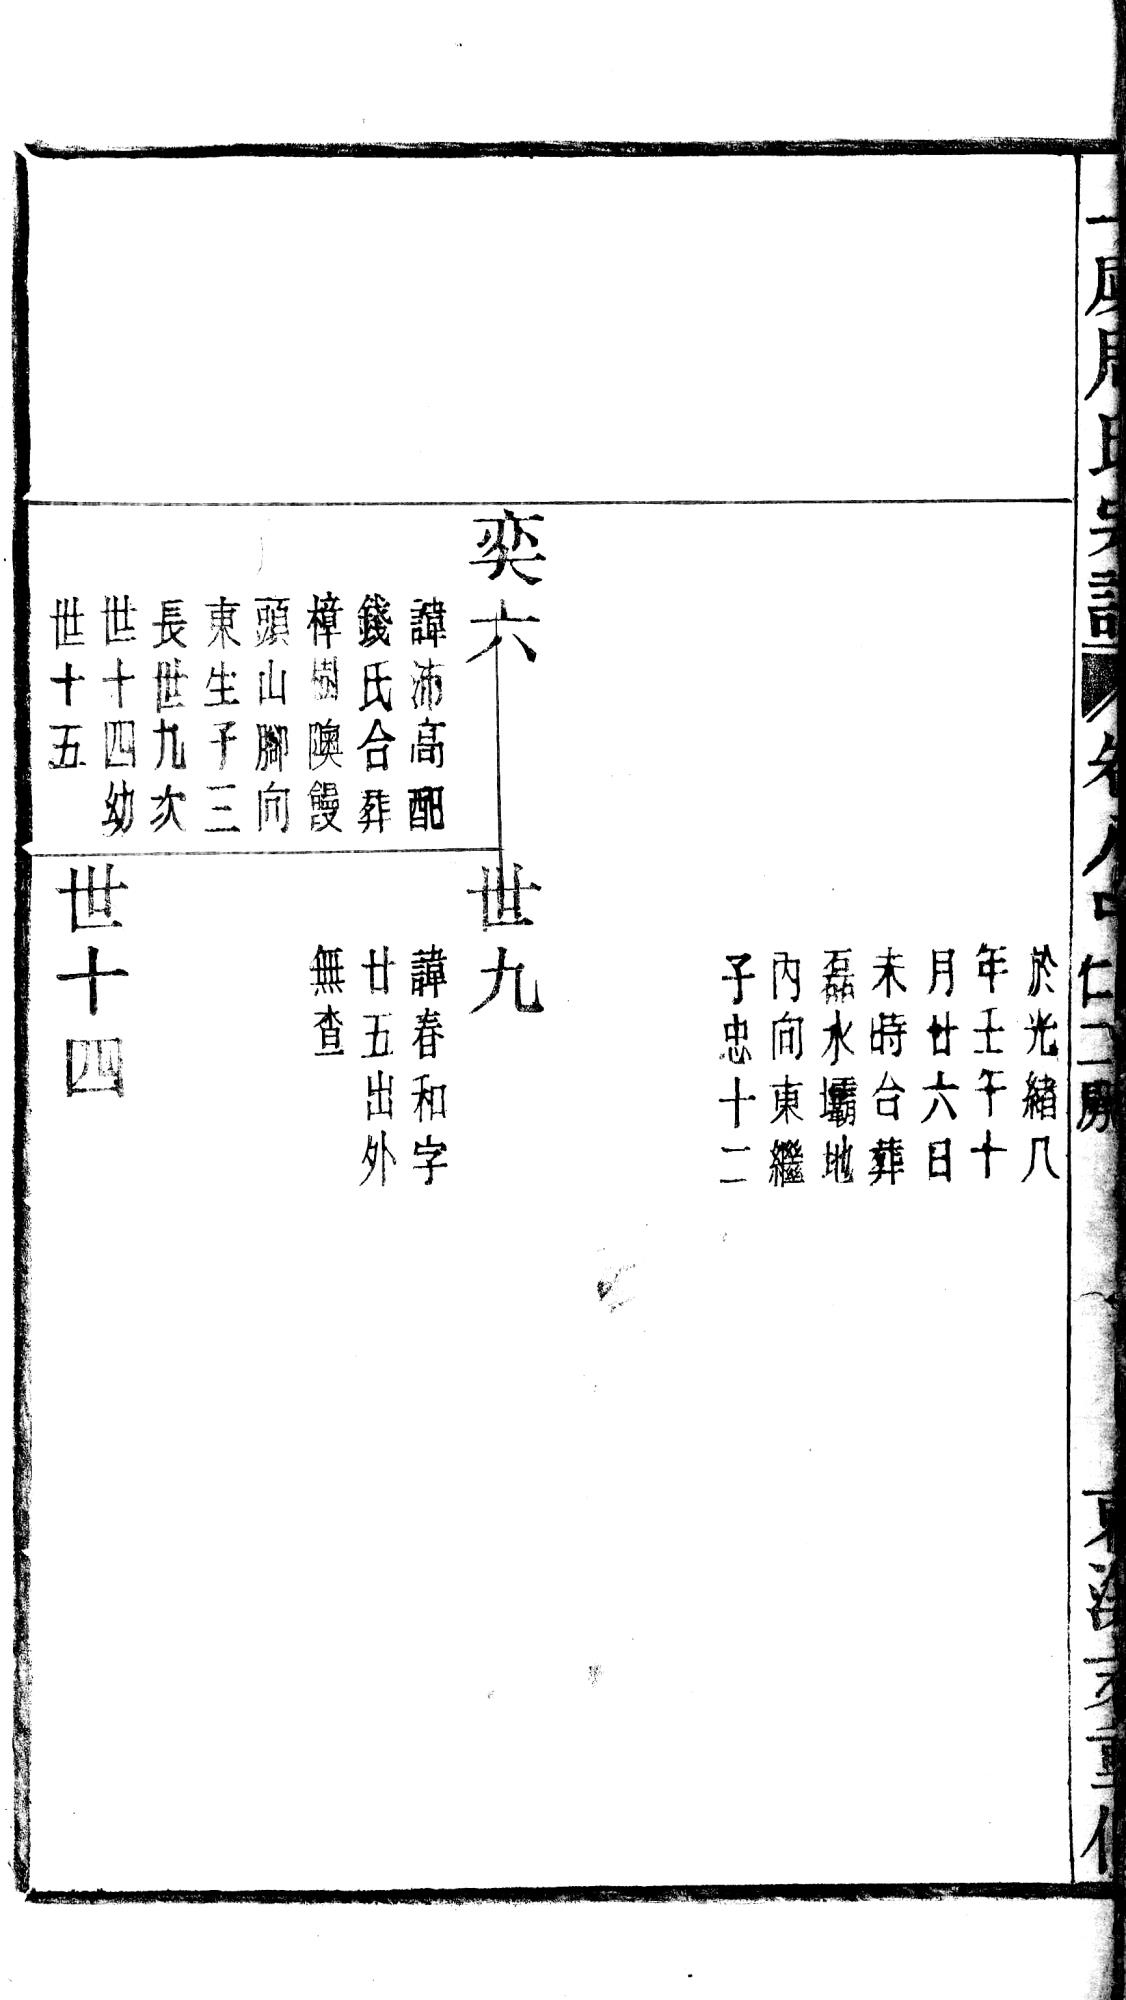 周氏宗譜
卷八中
仁二房
東海六重修
於光緒八
年壬午十
月廿六日
未時合葬
磊水壩地
內向東繼
子忠十二
奕六
諱沛高配
錢氏合葬
樟樹隩饅
頭山腳向
東生子三
長世九次
世十四幼
世十五
世九
諱春和字
廿五出外
無查
世十四